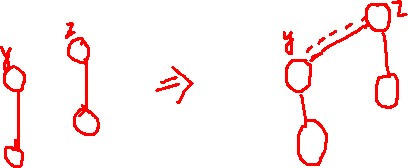 y z ⇒ y z